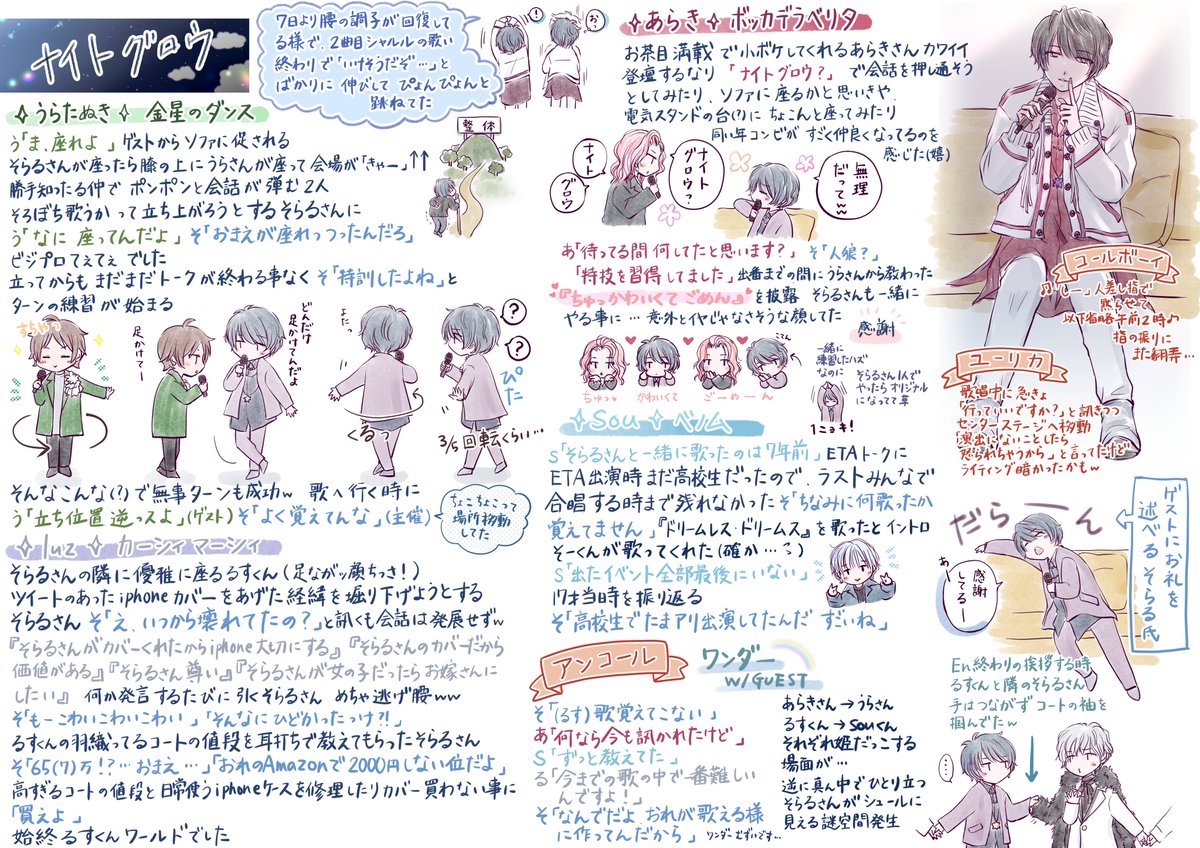 ナイトグロウ
7日より腰の調子が回復して
る様で、2曲目シャルルの歌い
終わりで「いけそうだぞ…」と
ばかりに伸びして ぴょんぴょんと
跳ねてた
!
お?
整体
✧うらたぬき✧ 金星のダンス
う「ま、座れよ」ゲストからソファに促される
そらるさんが座ったら膝の上にうらさんが座って会場が「きゃー」↑↑
勝手知ったる仲で ポンポンと会話が弾む2人
そろぼち歌うか って立ち上がろうとするそらるさんに
う「なに 座ってんだよ」そ「おまえが座れっつったんだろ」
ビジプロてぇてぇ でした
立ってからも まだまだトークが終わる事なく そ「特訓したよね」と
ターンの練習が始まる
すちゃっ
足かけてー
どんだけ
足かけてんだよ
よたっ
くるっ
?
?
ぴた
3/5回転くらい…
そんなこんな(?)で無事ターンも成功w 歌へ行く時に
う「立ち位置逆っスよ」(ゲスト) そ「よく覚えてんな」(主催)
ちょこちょこって
場所移動
してた
✧luz✧ カーシィマーシィ
そらるさんの隣に優雅に座るるすくん(足ながッ顔ちっさ!)
ツイートのあったiphoneカバーをあげた経緯を堀り下げようとする
そらるさん そ「え、いつから壊れてたの?」と訊くも会話は発展せずw
『そらるさんがカバーくれたからiphone大切にする』『そらるさんのカバーだから
価値がある』『そらるさん尊い』『そらるさんが女の子だったらお嫁さんに
したい』 何か発言するたびに引くそらるさん めちゃ逃げ腰ww
そ「もーこわいこわいこわい」「そんなにひどかったっけ?!」
るすくんの羽織ってるコートの値段を耳打ちで教えてもらったそらるさん
そ「65(?)万!?…おまえ…」「おれのAmazonで2000円しない位だよ」
高すぎるコートの値段と日常使うiphoneケースを修理したりカバー買わない事に
「買えよ」
始終るすくんワールドでした
✧あらき✧ ボッカデラベリタ
お茶目満載で小ボケしてくれるあらきさんカワイイ
登壇するなり「ナイトグロウ?」で会話を押し通そう
としてみたり、ソファに座るかと思いきや、
電気スタンドの台(?)に ちょこんと座ってみたり
同い年コンビが すごく仲良くなってるのを
感じた(嬉)
ナイト
グロウ
ナイト
グロウ?
無理
だってw
あ「待ってる間 何してたと思います?」 そ「人狼?」
「特技を習得してました」出番までの間にうらさんから教わった
『ちゅっかわいくてごめん』を披露 そらるさんも一緒に
やる事に… 意外とイヤじゃなさそうな顔してた
感謝
ちゅっ
かわいくて
ごーめーん
こてん
一緒に
練習したハズ
なのに
そらるさん1人で
やったらオリジナル
になってて草
1ニョキ!
✧Sou✧ベノム
S「そらるさんと一緒に歌ったのは7年前」ETAトークに
ETA出演時まだ高校生だったので、ラストみんなで
合唱する時まで残れなかった そ「ちなみに何歌ったか
覚えてません」『ドリームレス・ドリームス』を歌ったとイントロ
そーくんが歌ってくれた(確か…?)
S「出たイベント全部最後にいない」
17才当時を振り返る
そ「高校生でたまアリ出演してたんだ すごいね」
アンコール
ワンダー
w/GUEST
そ「(るす)歌覚えてこない」
あ「何なら今も訊かれたけど」
S「ずっと教えてた」
る「今までの歌の中で一番難しい
んですよ!」
そ「なんでだよ、おれが歌える様
に作ってんだから」ワンダーむずいです…
あらきさん→うらさん
るすくん→Souくん
それぞれ姫だっこする
場面が…
逆に真ん中でひとり立つ
そらるさんがシュールに
見える謎空間発生
コールボーイ
♫「しー」人差し指で
黙らせて
以下省略午前2時♪
指の振りに
また翻弄…
ユーリカ
歌唱中に急きょ
「行っていいですか?」と訊きつつ
センターステージへ移動
「演出にないことしたら
怒られちゃうから」と言ってたけど
ライティング暗かったかもw
ゲストにお礼を
述べるそらる氏
だらーん
感謝
してるー
あー
En終わりの挨拶する時
るすくんと隣のそらるさん
手はつながず コートの袖を
掴んでたw
…